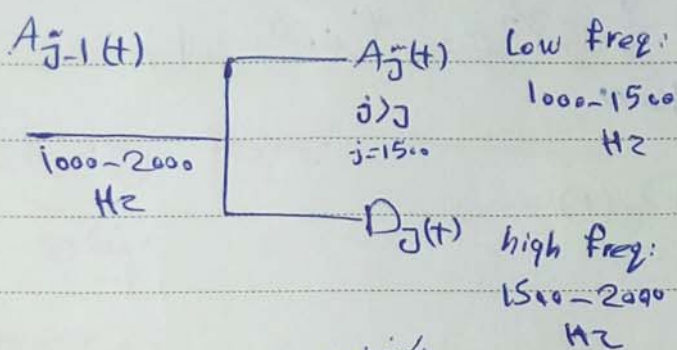 A j-1 (t)
1000-2000
Hz
A j (t)
j>J
j=1500
D J (t)
Low freq:
1000-1500
Hz
high freq:
1500-2000
Hz